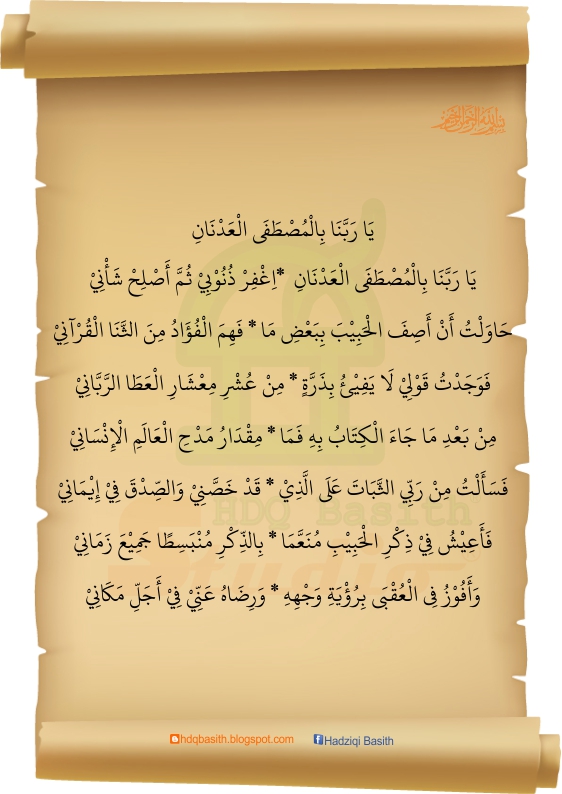 بسم الله الرحمن الرحيم
يَا رَبَّنَا بِالْمُصْطَفَى الْعَدْنَانِ
يَا رَبَّنَا بِالْمُصْطَفَى الْعَدْنَانِ *اِغْفِرْ ذُنُوْبِيْ ثُمَّ أَصْلِحْ شَأْنِيْ
حَاوَلْتُ أَنْ أَصِفَ الْحَبِيْبَ بِبَعْضِ مَا * فَهِمَ الْفُؤَادُ مِنَ الثَّنَا الْقُرْآنِيْ
فَوَجَدْتُ قَوْلِيْ لَا يَفِيْئُ بِذَرَّةٍ * مِنْ عُشْرِ مِعْشَارِ الْعَطَا الرَّبَّانِيْ
مِنْ بَعْدِ مَا جَاءَ الْكِتَابُ بِهِ فَمَا * مِقْدَارُ مَدْحِ الْعَالَمِ الْإِنْسَانِيْ
فَسَأَلْتُ مِنْ رَبِّي الثَّبَاتَ عَلَى الَّذِيْ * قَدْ خَصَّنِيْ وَالصِّدْقَ فِيْ إِيْمَانِيْ
HDQ Basith
فَأَعِيْشُ فِيْ ذِكْرِ الْحَبِيْبِ مُنَعَّمَا * بِالذِّكْرِ مُنْبَسِطًا جَمِيْعَ زَمَانِيْ
Studio
وَأَفُوْزُ فِى الْعُقْبَى بِرُؤْيَةِ وَجْهِهِ * وَرِضَاهُ عَنِّيْ فِيْ أَجَلِّ مَكَانِيْ
hdqbasith.blogspot.com Hadziqi Basith